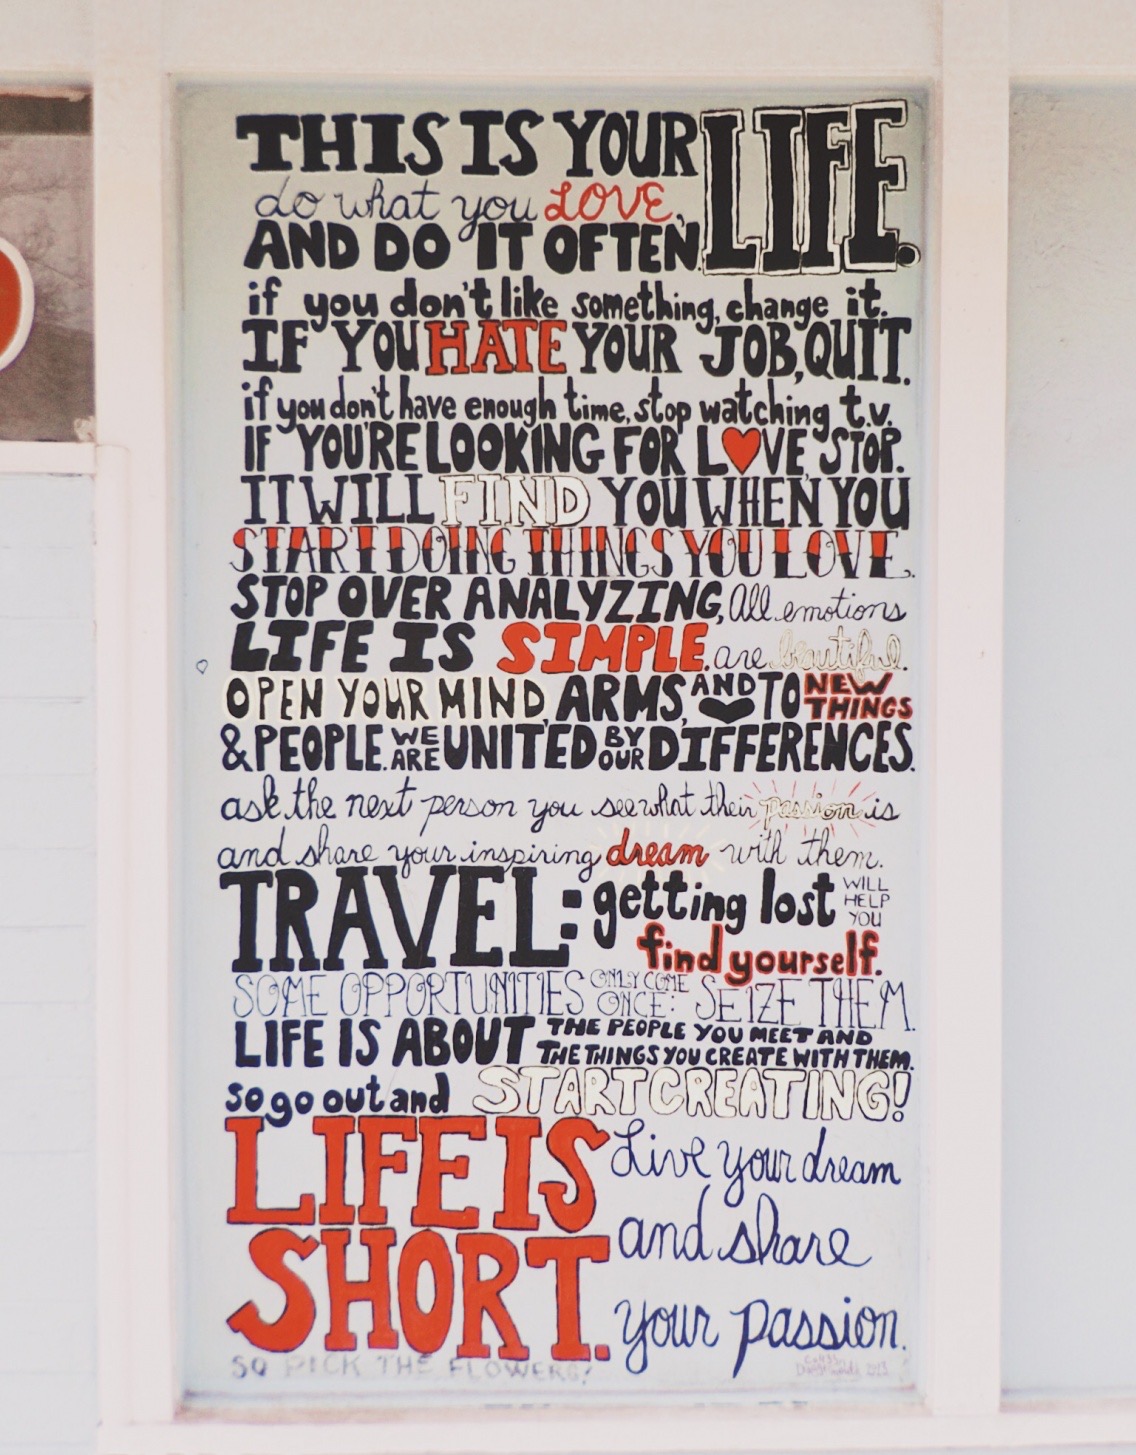 THIS IS YOUR LIFE.
do what you LOVE,
AND DO IT OFTEN.
if you don't like something, change it.
IF YOU HATE YOUR JOB, QUIT.
if you don't have enough time, stop watching t.v.
IF YOU'RE LOOKING FOR L♥VE STOP.
IT WILL FIND YOU WHEN YOU
START DOING THINGS YOU LOVE.
STOP OVER ANALYZING,
LIFE IS SIMPLE.
All emotions
are beautiful.
OPEN YOUR MIND, ARMS, AND ♥ TO NEW THINGS
& PEOPLE. WE ARE UNITED BY OUR DIFFERENCES.
ask the next person you see what their passion is
and share your inspiring dream with them.
TRAVEL: getting lost WILL HELP YOU
find yourself.
SOME OPPORTUNITIES ONLY COME ONCE: SEIZE THEM.
LIFE IS ABOUT THE PEOPLE YOU MEET AND
THE THINGS YOU CREATE WITH THEM.
so go out and START CREATING!
LIFE IS
SHORT.
Live your dream
and share
your passion.
SO PICK THE FLOWERS!